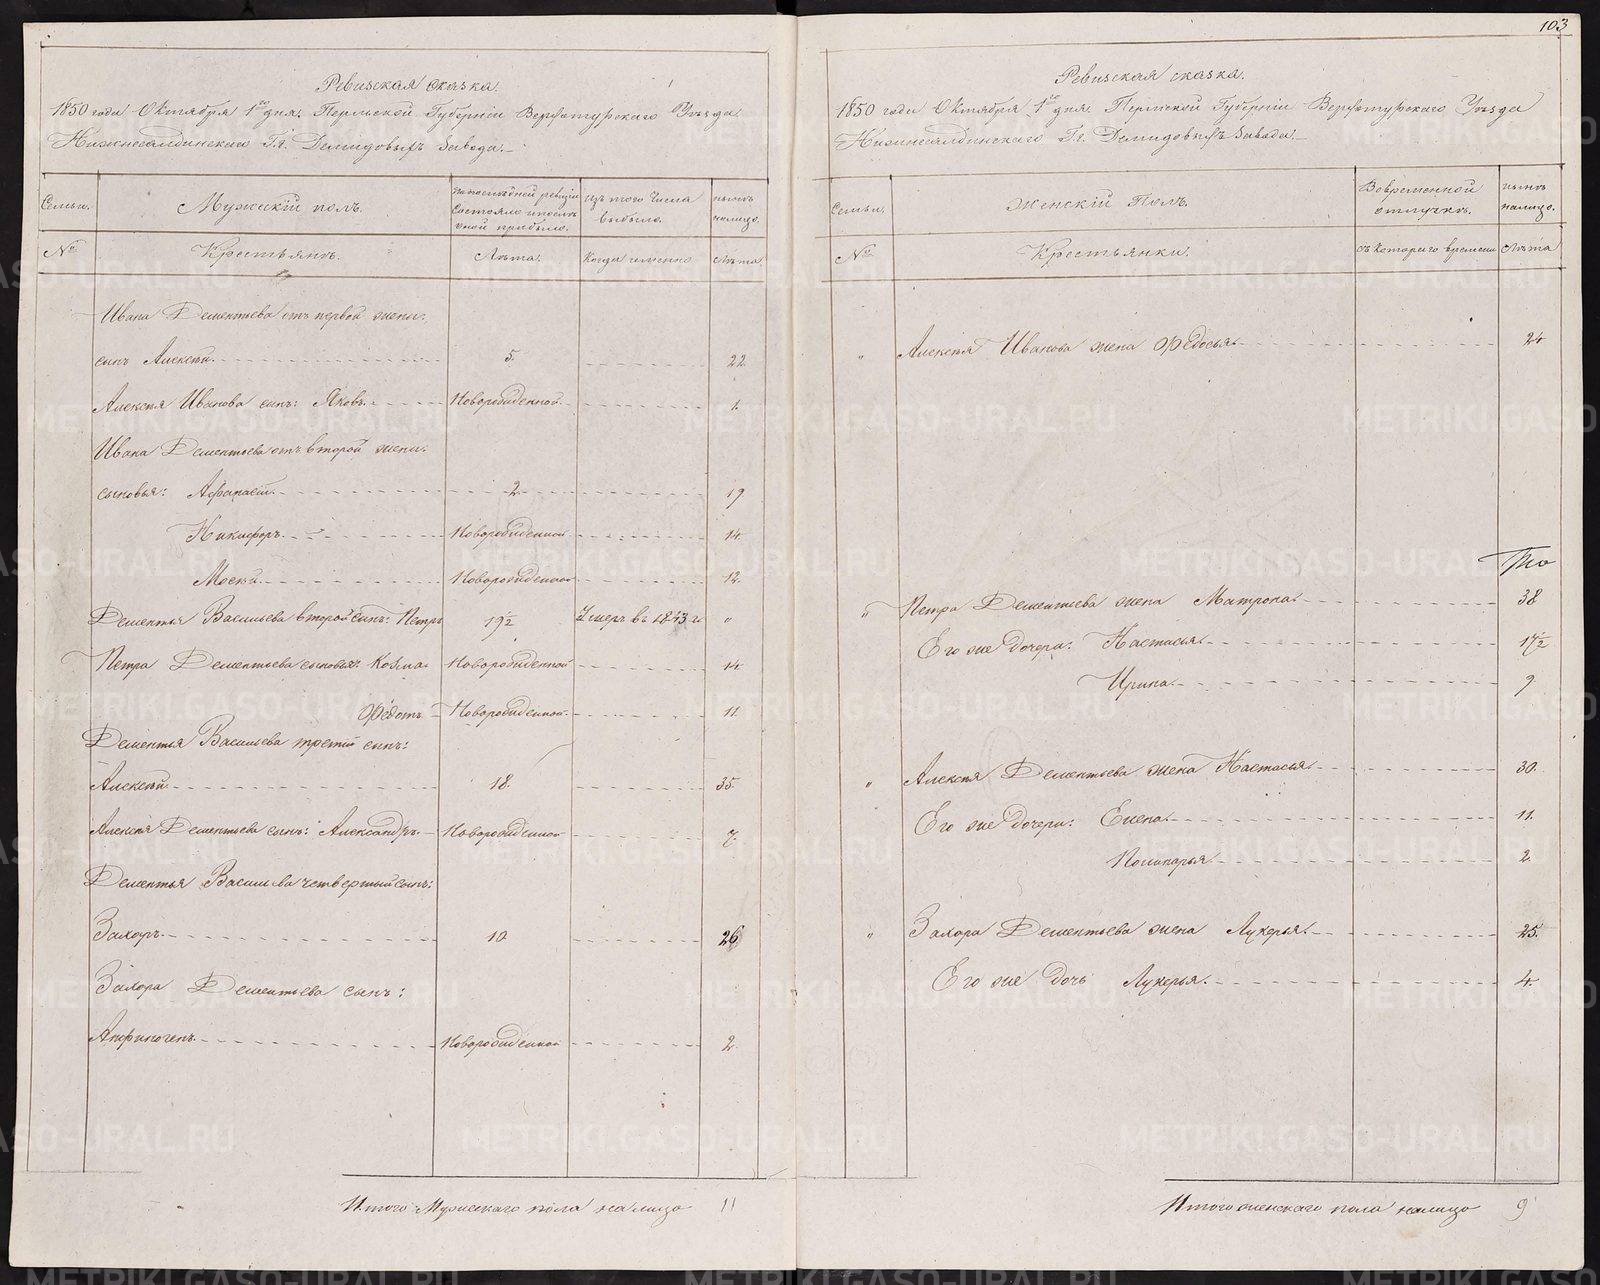 Ревизская сказка.
1850 года Октября 1го дня. Пермской Губернiи Верхотурскаго Уезда
Нижнесалдинскаго Г.г. Демидовыхъ Завода.
Семьи.
Мужескiй полъ.
По последней ревизiи
состояло и после
оной прибыло.
изъ того числа
выбыло.
ныне
налицо.
№
Крестьяне.
Лета.
Когда именно
Лета
Ивана Дементьева отъ первой жены:
сынъ Алексей. 5. 22
Алексея Иванова сынъ: Яковъ. Новорожденной. 1.
Ивана Дементьева отъ второй жены:
сыновья: Афанасiй. 2. 19
Никифоръ. Новорожденной 14.
Мосей. Новорожденной 12.
Дементья Васильева второй сынъ: Петръ 19½ Умеръ въ 1843 г. "
Петра Дементьева сыновья: Козма. Новорожденной 14
Федотъ Новорожденной. 11
Дементья Васильева третiй сынъ:
Алексей. 18. 35.
Алексея Дементьева сынъ: Александръ. Новорожденной 7.
Дементья Васильева четвертый сынъ:
Захаръ. 10 26
Захара Дементьева сынъ:
Анфиногенъ. Новорожденной 2.
Итого Мужескаго пола налицо 11
103
Ревизская сказка.
1850 года Октября 1го дня. Пермской Губернiи Верхотурскаго Уезда
Нижнесалдинскаго Г.г. Демидовыхъ Завода.
Семьи.
Женскiй Полъ.
Во временной
отлучке.
ныне
налицо.
№
Крестьянки.
съ котораго времени
Лета
" Алексея Иванова жена Федосья. 24
" Петра Дементьева жена Матрона. 38
Его же дочери: Настасья. 17½
Ирина. 9
" Алексея Дементьева жена Настасья. 30.
Его же дочери: Елена. 11.
Полинарья. 2.
" Захара Дементьева жена Лукерья. 25.
Его же дочь Лукерья. 4.
Итого женскаго пола налицо 9
METRIKI.GASO-URAL.RU